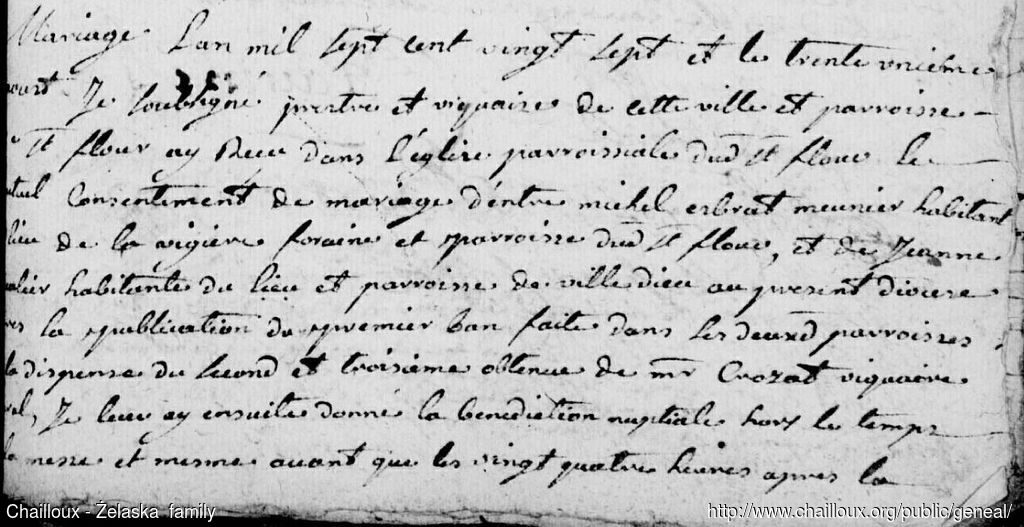 Mariage Lan mil sept cent vingt sept et le trente unieme
Je soubsigné prestre et viquaire de cette ville et parroisse
St flour ay Receu dans l'église parroissiale dud St flour le
Consentiment de mariage d'entre michel esbrat meunier habitant
lieu de la vigiere foraine et parroisse dud St flour, et de Jeanne
habitante du lieu et parroisse de ville dieu au present diocese
la publication du premier ban faite dans les deux parroisses
la dispense du second et troisieme obtenue de mr Crozat viquaire
Je leur ay ensuite donné la benediction nuptiale hors le temps
la messe et mesme avant que les vingt quatre heures apres la
Chailloux - Żelaska family
http://www.chailloux.org/public/geneal/